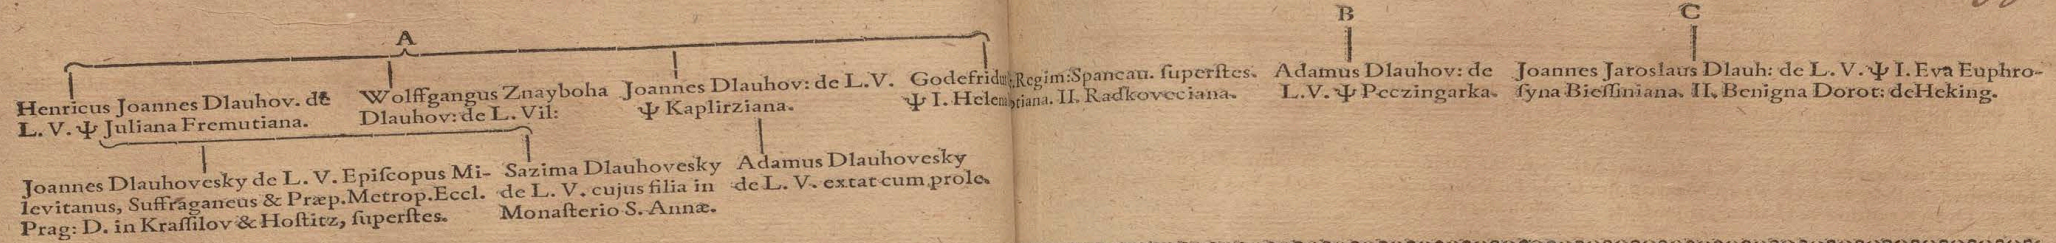 A
B
C
Henricus Joannes Dlauhov. de
L. V. Ψ Juliana Fremutiana.
Wolffgangus Znayboha
Dlauhov: de L. Vil:
Joannes Dlauhov: de L.V.
Ψ Kaplirziana.
Godefridus Regim: Spancau. ſuperſtes.
Ψ I. Helen tiana. II. Radkoveciana.
Adamus Dlauhov: de
L.V. Ψ Peczingarka.
Joannes Jaroslaus Dlauh: de L. V. Ψ I. Eva Euphro-
ſyna Bieſſiniana. II. Benigna Dorot: deHeking.
Joannes Dlauhovesky de L. V. Epiſcopus Mi-
levitanus, Suffraganeus & Præp. Metrop. Eccl.
Prag: D. in Kraſſilov & Hoſtitz, ſuperſtes.
Sazima Dlauhovesky
de L. V. cujus filia in
Monaſterio S. Annæ.
Adamus Dlauhovesky
de L. V. extat cum prole.